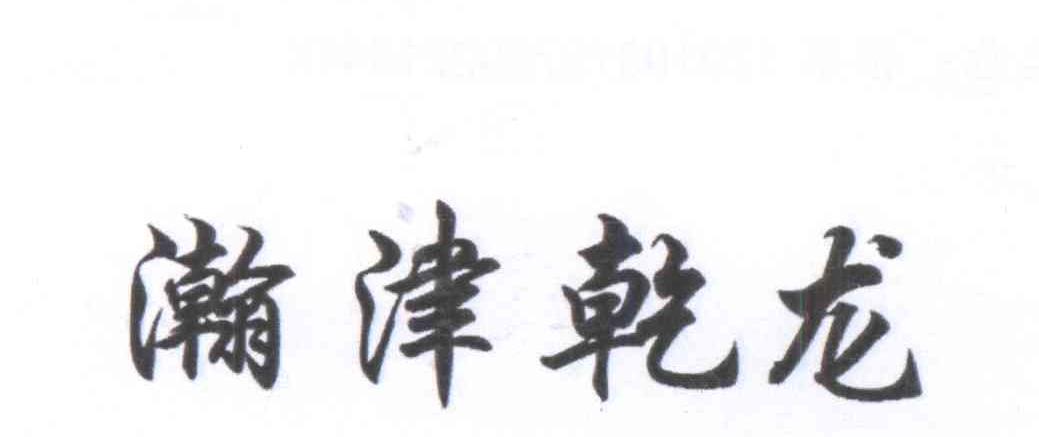 瀚津乾龙